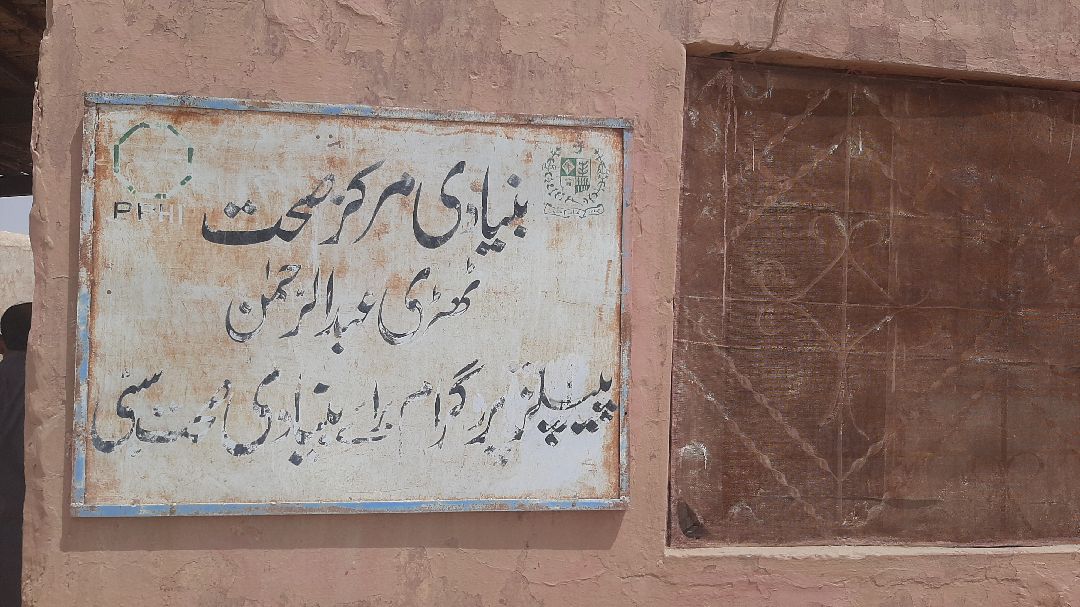 PPHI
بنیادی مرکز صحت
ٹھڑی عبدالرحمٰن
پیپلز پروگرام برائے بنیادی صحت سبی